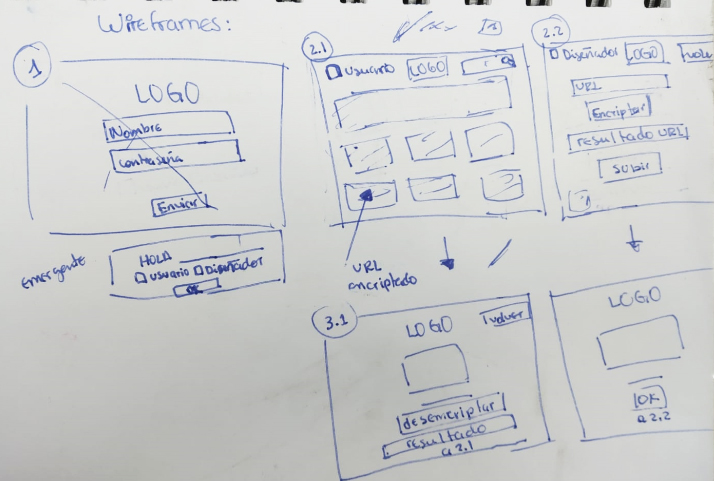 Wireframes:
1
LOGO
Nombre
contraseña
Enviar
emergente
HOLA
usuario Diseñador
OK
2.1
usuario LOGO
URL
encriptado
2.2
Diseñador LOGO
URL
Encriptar
resultado URL
subir
3.1
LOGO volver
desencriptar
resultado
a 2.1
LOGO
OK
a 2.2